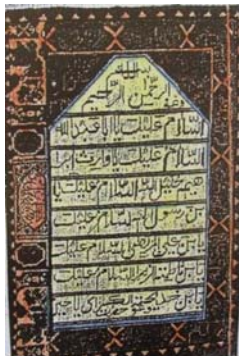 بسم الله
الرحمن الرحیم
السلام علیک یا ابا عبدالله
السلام علیک یا وارث ابرا
هیم خلیل الله السلام علیک یا
بن رسول الله السلام علیک
یابن علی المرتضی السلام علیک
یابن فاطمة الزهرا السلام علیک
یابن خدیجة الکبری